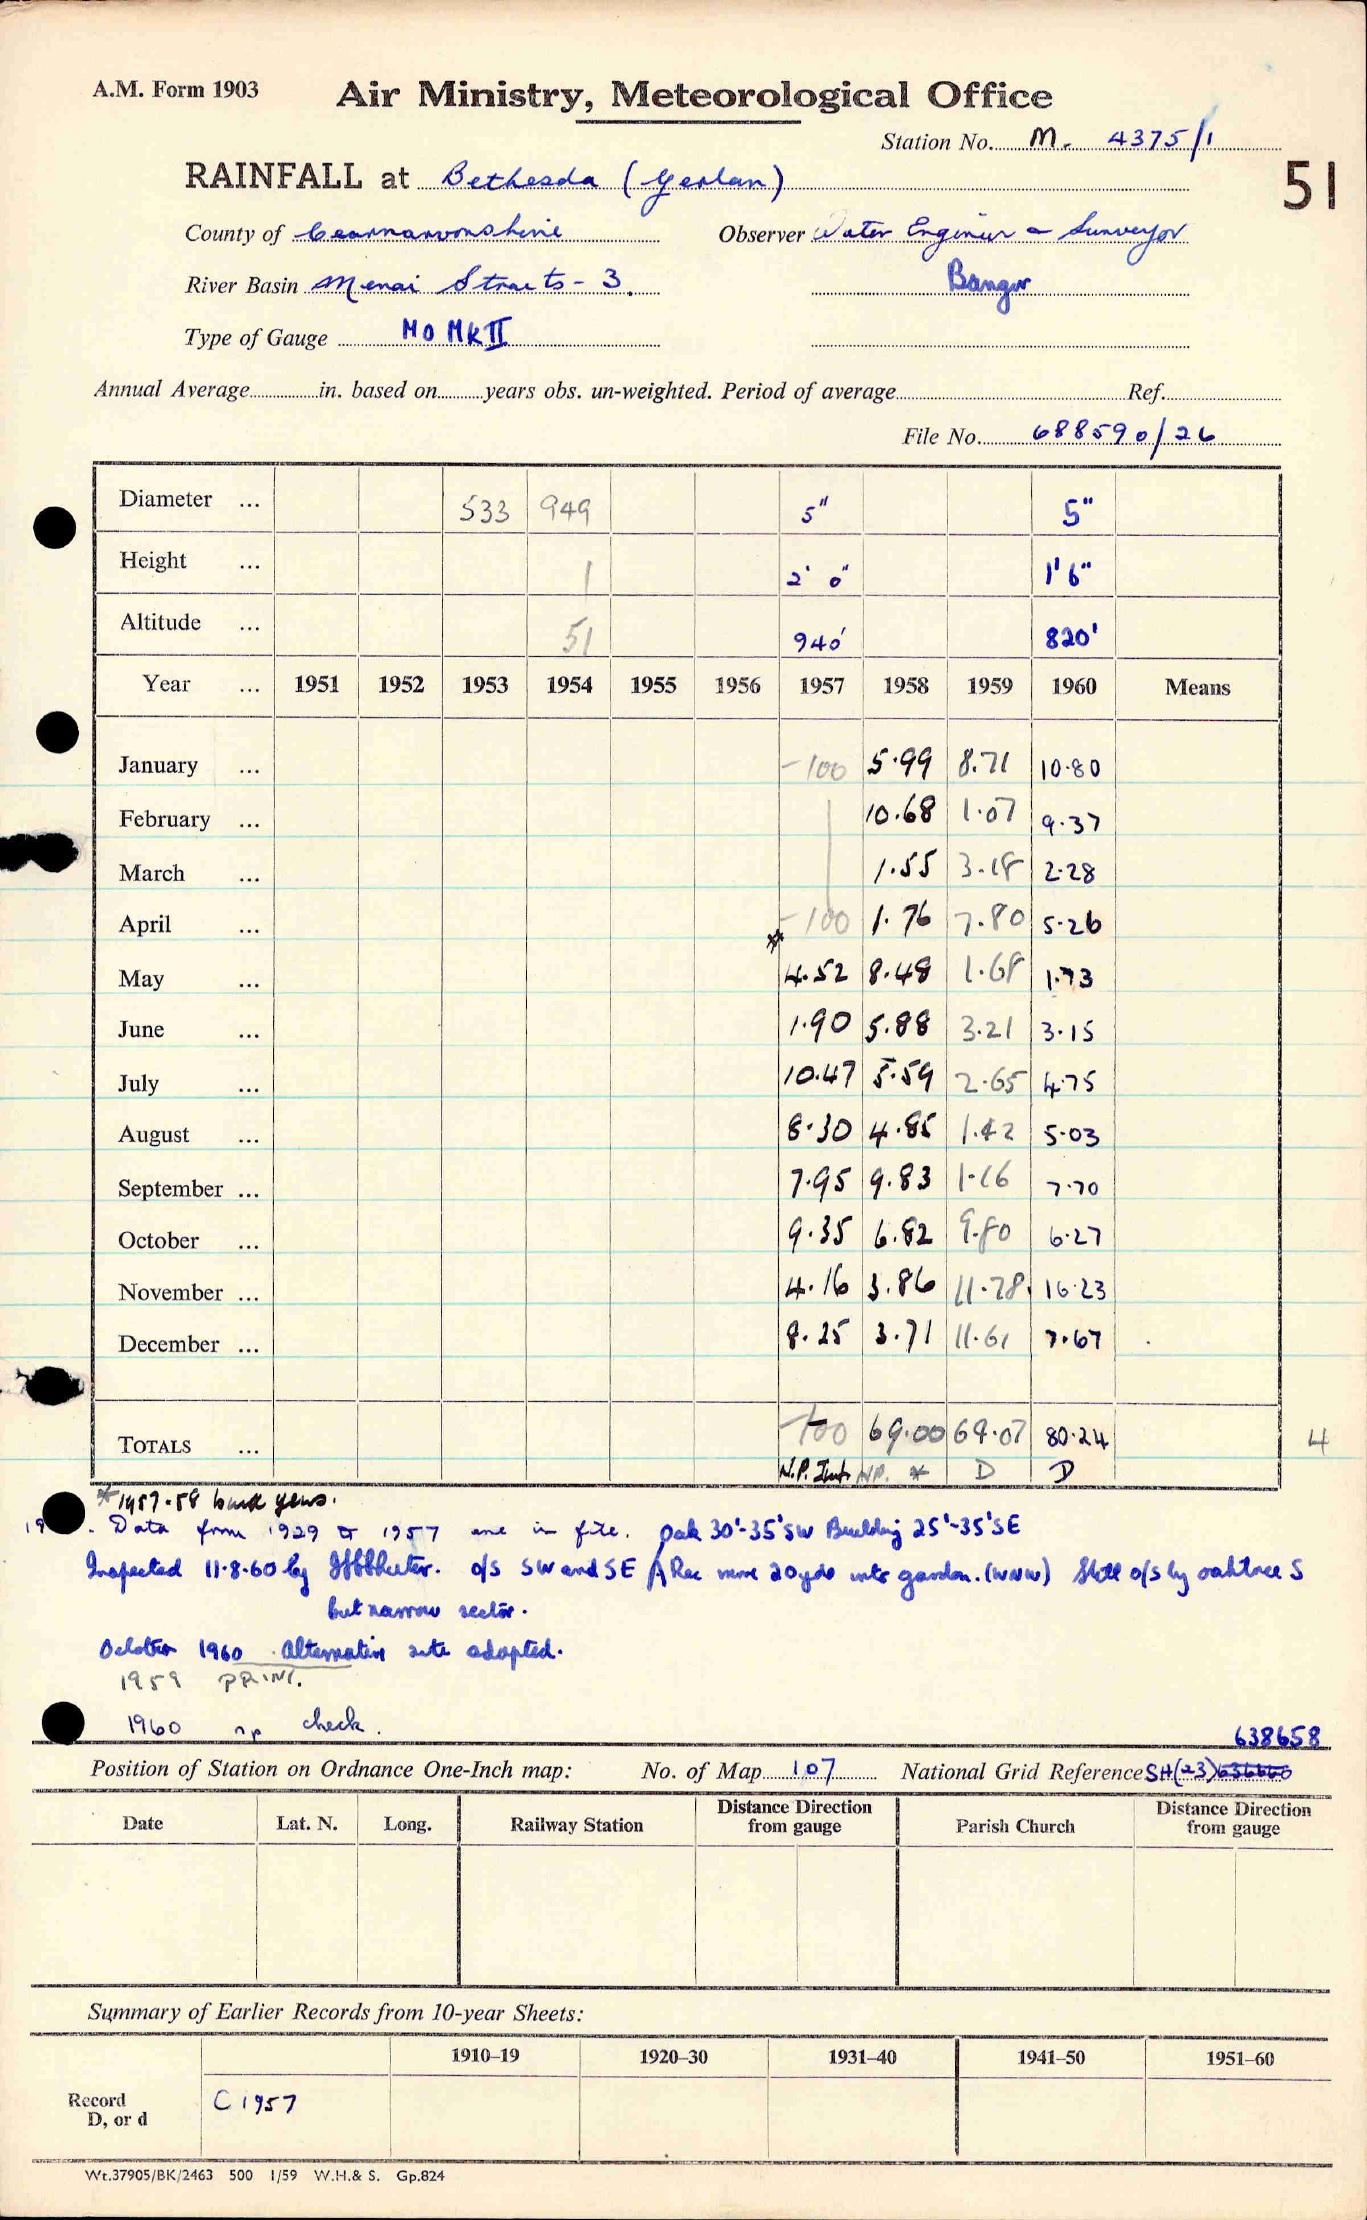 A.M. Form 1903 Air Ministry, Meteorological Office
Station No. M. 4375/1
RAINFALL at Bethesda (Gerlan) 51
County of Caernarvonshire Observer Water Engineer & Surveyor
River Basin Menai Straits - 3. Bangor
Type of Gauge MO MK II
Annual Average in. based on years obs. un-weighted. Period of average Ref.
File No. 688590/26
Diameter ... 533 949 5" 5"
Height ... 1 2' 0" 1'6"
Altitude ... 51 940' 820'
Year ... 1951 1952 1953 1954 1955 1956 1957 1958 1959 1960 Means
January ... -100 5.99 8.71 10.80
February ... 10.68 1.07 9.37
March ... 1.55 3.18 2.28
April ... -100 1.76 7.80 5.26
May ... * 4.52 8.48 1.68 1.73
June ... 1.90 5.88 3.21 3.15
July ... 10.47 5.59 2.65 4.75
August ... 8.30 4.85 1.42 5.03
September ... 7.95 9.83 1.16 7.70
October ... 9.35 6.82 9.80 6.27
November ... 4.16 3.86 11.78 16.23
December ... 8.25 3.71 11.61 7.67
TOTALS ... -100 69.00 64.07 80.24 4
N.P. Int. NP. * D D
* 1957-58 years.
Data from 1929 to 1957 are in file. Oak 30'-35' SW Building 25'-35' SE
Inspected 11.8.60 by o/s SW and SE Rec move 20yds into garden. (WNW) Still o/s by oaktree S
but narrow sector.
October 1960 Alternative site adopted.
1959 PRINT.
1960 np check.
638658
Position of Station on Ordnance One-Inch map: No. of Map 107 National Grid Reference SH(23) 636660
Date Lat. N. Long. Railway Station Distance Direction from gauge Parish Church Distance Direction from gauge
Summary of Earlier Records from 10-year Sheets:
1910–19 1920–30 1931–40 1941–50 1951–60
Record C 1957
D, or d
Wt.37905/BK/2463 500 1/59 W.H.& S. Gp.824